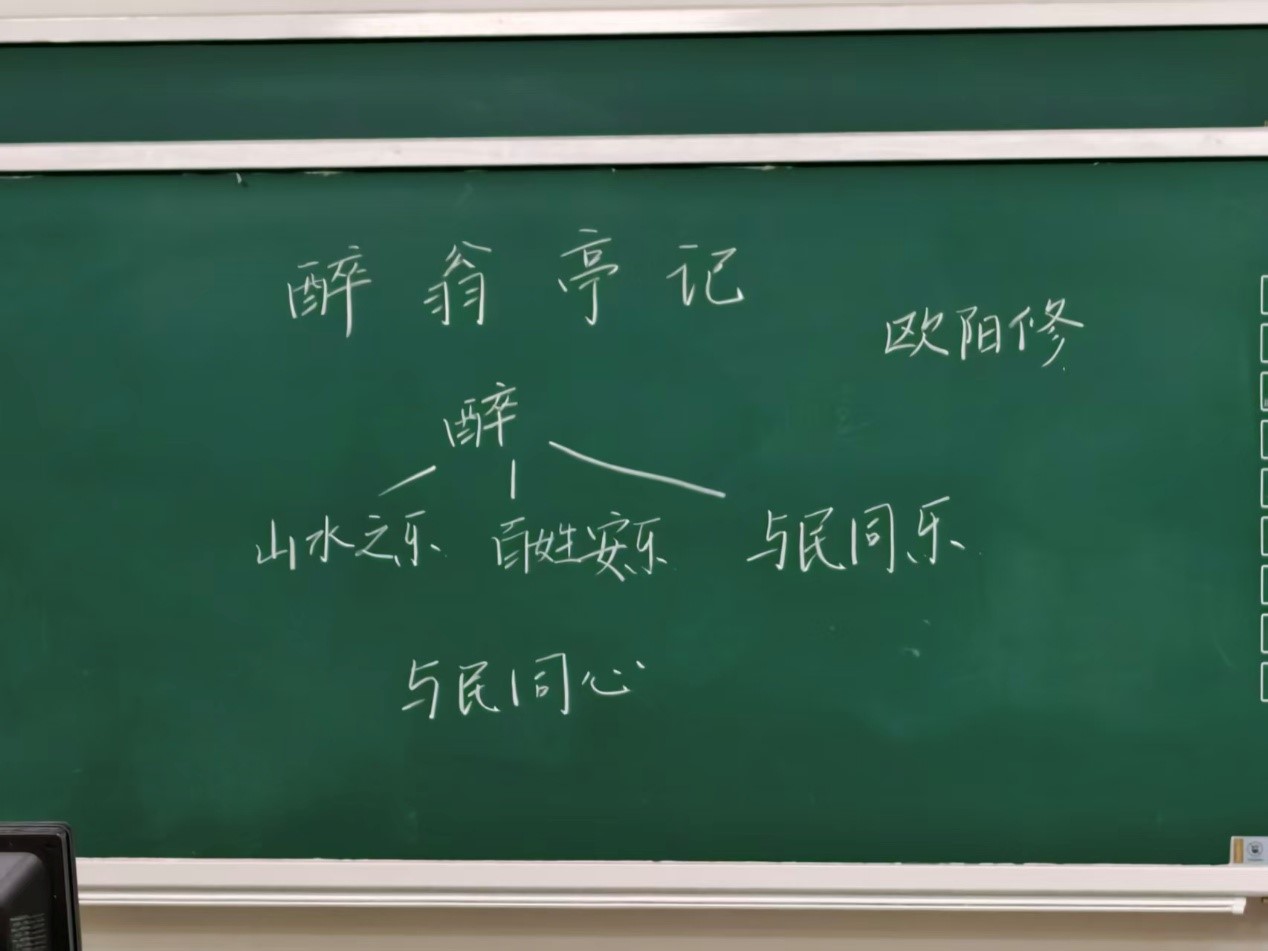 醉翁亭记
欧阳修
醉
山水之乐 百姓安乐 与民同乐
与民同心